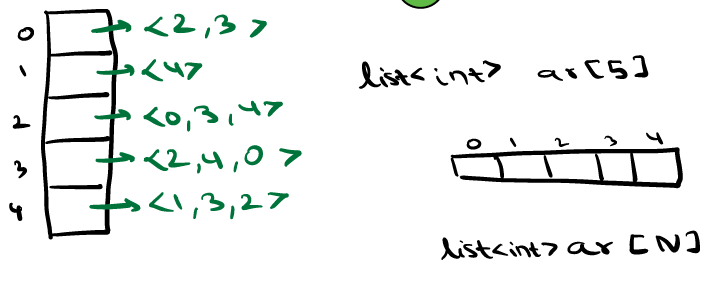 0 → <2,3>
1 → <4>
2 → <0,3,4>
3 → <2,4,0>
4 → <1,3,2>
list<int> ar[5]
0 1 2 3 4
list<int> ar[N]